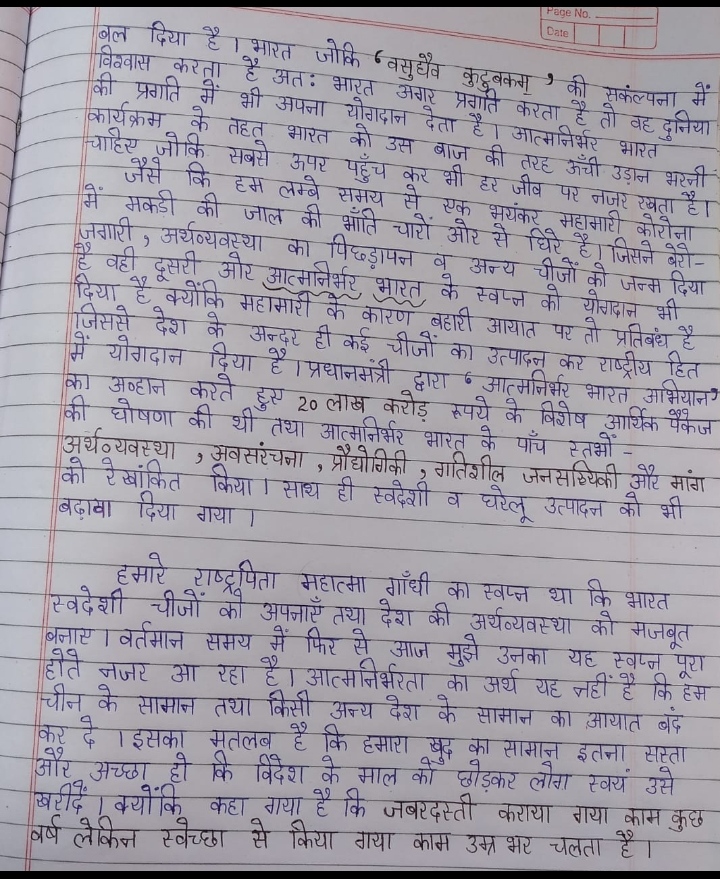 Page No.
Date
बल दिया है। भारत जोकि "वसुधैव कुटुबकम्" की सकंल्पना में
विश्वास करता है अतः भारत अगर प्रगति करता है तो वह दुनिया
की प्रगति में भी अपना योगदान देता है। आत्मनिर्भर भारत
कार्यक्रम के तहत भारत को उस बाज की तरह ऊँची उड़ान भरनी
चाहिए जोकि सबसे ऊपर पहुँच कर भी हर जीव पर नजर रखता है।
जैसे कि हम लम्बे समय से एक भयंकर महामारी कोरोना
में मकड़ी की जाल की भाँति चारों ओर से घिरे है। जिसने बेरो-
जगारी, अर्थव्यवस्था का पिछड़ापन व अन्य चीजों को जन्म दिया
है वही दूसरी ओर आत्मनिर्भर भारत के स्वप्न को योगदान भी
दिया है क्योंकि महामारी के कारण बहारी आयात पर तो प्रतिबंध है
जिससे देश के अन्दर ही कई चीजों का उत्पादन कर राष्ट्रीय हित
में योगदान दिया है। प्रधानमंत्री द्वारा "आत्मनिर्भर भारत अभियान"
का अव्हान करते हुए 20 लाख करोड़ रूपये के विशेष आर्थिक पैकेज
की घोषणा की थी तथा आत्मनिर्भर भारत के पाँच स्तभों -
अर्थव्यवस्था, अवसरंचना, प्रौद्योगिकी, गतिशील जनसख्यिकी और मांग
को रेखांकित किया। साथ ही स्वदेशी व घरेलू उत्पादन को भी
बढ़ावा दिया गया।
हमारे राष्ट्रपिता महात्मा गाँधी का स्वप्न था कि भारत
स्वदेशी चीजों को अपनाएँ तथा देश की अर्थव्यवस्था को मजबूत
बनाए। वर्तमान समय में फिर से आज मुझे उनका यह स्वप्न पूरा
होते नजर आ रहा है। आत्मनिर्भरता का अर्थ यह नहीं है कि हम
चीन के सामान तथा किसी अन्य देश के सामान का आयात बंद
कर दे। इसका मतलब है कि हमारा खुद का सामान इतना सस्ता
और अच्छा हो कि विदेश के माल को छोड़कर लोग स्वयं उसे
खरीदें। क्योंकि कहा गया है कि जबरदस्ती कराया गया काम कुछ
वर्ष लेकिन स्वेच्छा से किया गया काम उम्र भर चलता है।